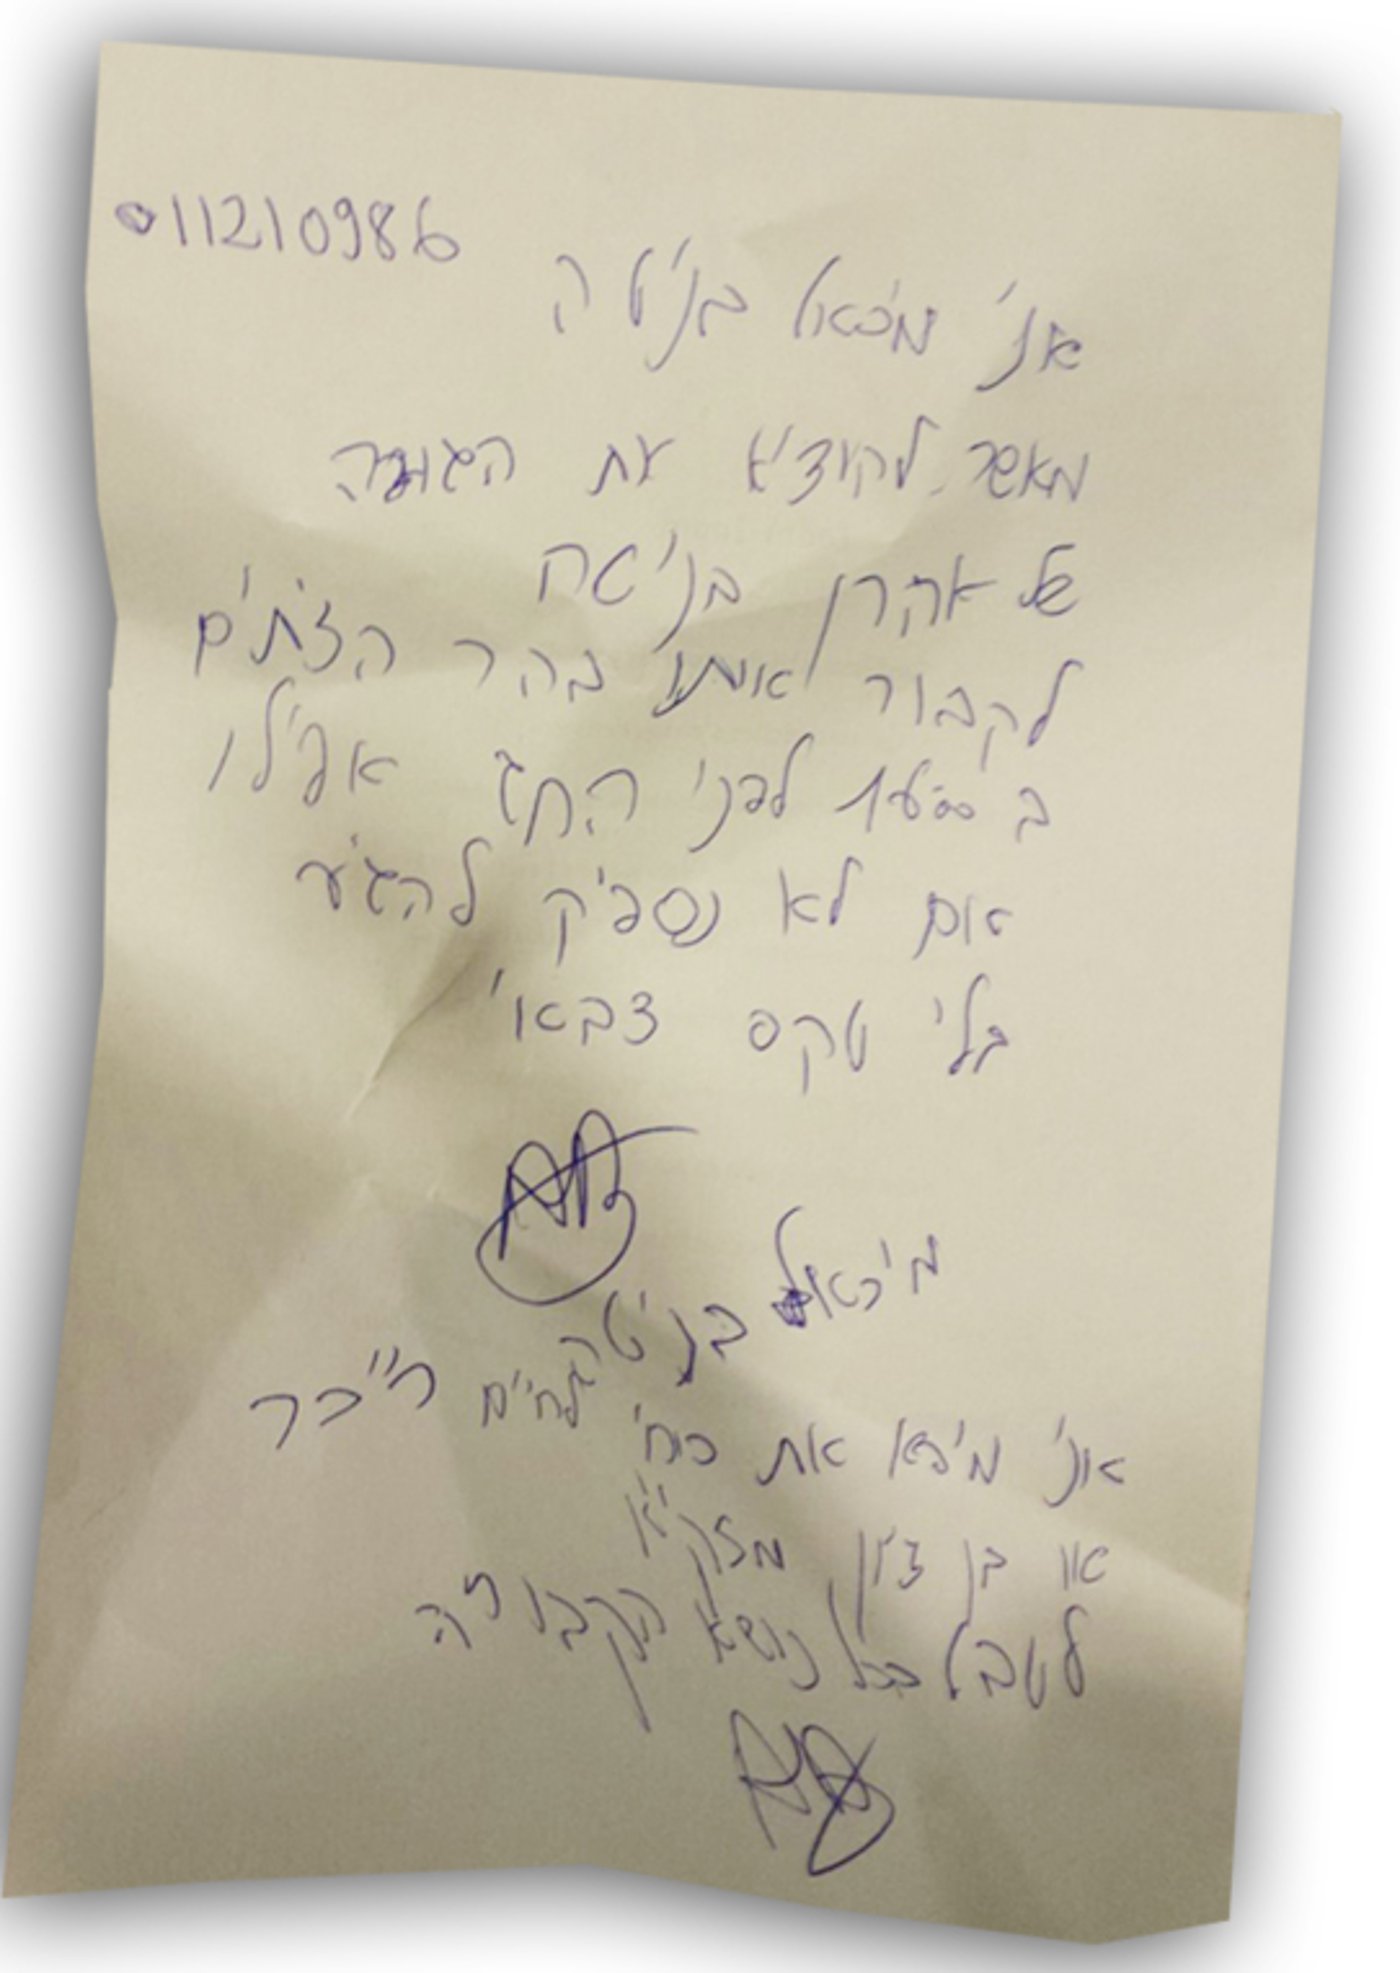 אני מיכאל בניטה 011210986
מאשר להוציא את הגופה
של אהרן בניטה
לקבור אותו בהר הזתים
לפני החג אפילו
אום לא נספיק להגיע
בלי טקס צבאי
מיכאל בניטה
אני מיפא את כוחי לח"ם ח"כר
או בן ציון מזק"א
לטבל בכל נושא הקבורה